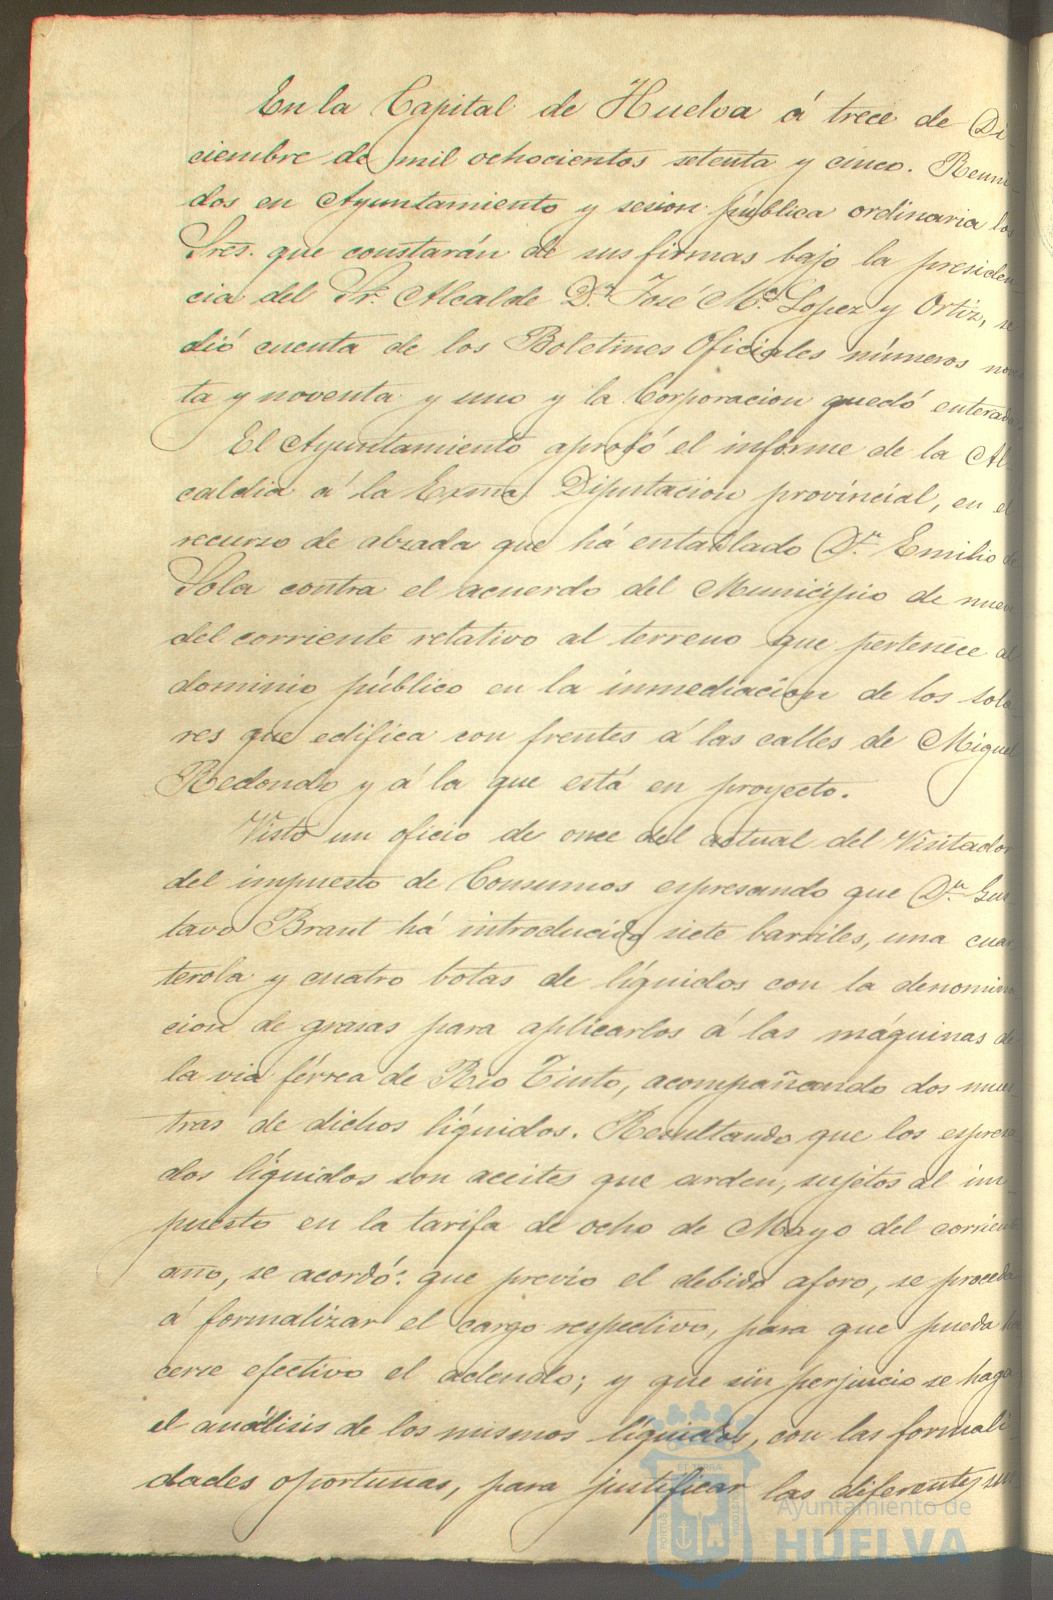 En la Capital de Huelva á trece de Di-
ciembre de mil ochocientos setenta y cinco. Reuni-
dos en Ayuntamiento y sesion pública ordinaria los
Sres. que constarán de sus firmas bajo la presiden
cia del Sr. Alcalde D.n José M.a Lopez y Ortiz, se
dió cuenta de los Boletines Oficiales números noven
ta y noventa y uno y la Corporacion quedó enterada.
El Ayuntamiento aprobó el informe de la Al-
caldia á la Exma Diputacion provincial, en el
recurso de alzada que há entablado D.n Emilio de
Sola contra el acuerdo del Municipio de nueve
del corriente relativo al terreno que pertenece al
dominio público en la inmediacion de los sola-
res que edifica con frentes á las calles de Miguel
Redondo y á la que está en proyecto.
Visto un oficio de once del actual del Visitador
del impuesto de Consumos espresando que D.n Gus-
tavo Brant há introducido siete barriles, una cuar
terola y cuatro botas de líquidos con la denomina
cion de grasas para aplicarlos á las máquinas de
la via férrea de Rio Tinto, acompañando dos mues-
tras de dichos líquidos. Resultando que los espresa
dos líquidos son aceites que arden, sujetos al im-
puesto en la tarifa de ocho de Mayo del corriente
año, se acordó: que previo el debido aforo, se proceda
á formalizar el cargo respectivo, para que pueda ha
cerse efectivo el adeudo; y que sin perjuicio se haga
el análisis de los mismos líquidos, con las formali-
dades oportunas, para justificar las diferentes
Ayuntamiento de
HUELVA